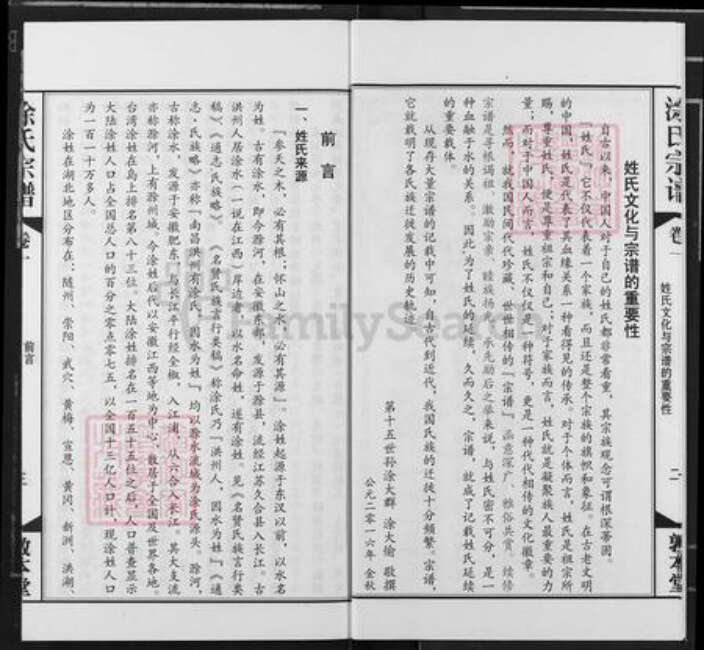 涂氏宗谱
卷一
姓氏文化与宗谱的重要性
二
敦本堂
姓氏文化与宗谱的重要性
自古以来，中国人对于自己的姓氏都非常看重，其宗族观念可谓根深蒂固。
『姓氏』，它不仅代表着一个家族，而且还是整个宗族的旗帜和象征。在古老文明
的中国，姓氏是代表了其血缘关系一种看得见的传承。对于个体而言，姓氏是祖宗所
赐，尊重姓氏，便是尊重祖宗和自己；对于家族而言，姓氏就是凝聚族人最重要的力
量；而对于中国人而言，姓氏不仅仅是一种符号，更是一种代代相传的文化徽章。
然而，就我国民间代代珍藏、世世相传的『宗谱』，函意深广，雅俗共赏。续修
宗谱是寻根谒祖，激励宗亲，睦族扬，承先励后之举来说，与姓氏密不可分，是一
种血融于水的关系。因此为了姓氏的延续，久而久之，宗谱，就成了记载姓氏延续
的重要载体。
从现存大量宗谱的记载中可知，自古代到近代，我国氏族的迁徙十分频繁。宗谱，
它就载明了各氏族迁徙发展的历史轨迹。
第十五世孙涂大群 涂大愉 敬撰
公元二零一六年 金秋
前言
一、姓氏来源
『参天之木，必有其根；怀山之水，必有其源』。涂姓起源于东汉以前，以水名
为姓。古有涂水，即今滁河，在安徽东部，发源于滁县，流经江苏久合县入长江。古
洪州人居涂水（一说在江西）岸边者，以水名命姓，遂有涂姓。见《名贤氏族言行类
稿》、《通志氏族略》。《名贤氏族言行类稿》称涂氏乃『洪州人，因水为姓』。《通
志·氏族略》亦称『南昌洪州有涂氏，因水为姓』，均以涂水流域为涂氏源头。滁河，
古称涂水，发源于安徽肥东，与长江平行经全椒，入江浦，从六合入长江。其大支流
亦称滁河，上有滁州城。今涂姓后代以安徽江西等地为中心，散居于全国及世界各地。
台湾涂姓在岛上排名第八十三位。大陆涂姓排名在一百五十五位之后，人口普查显示
大陆涂姓人口占全国总人口的百分之零点零七五，以全国十三亿人口计，现涂姓人口
为一百一十万多人。
涂姓在湖北地区分布在：随州、崇阳、武穴、黄梅、宣恩、黄冈、新洲、洪湖、
涂氏宗谱
卷一
前言
三
敦本堂
FamilySearch